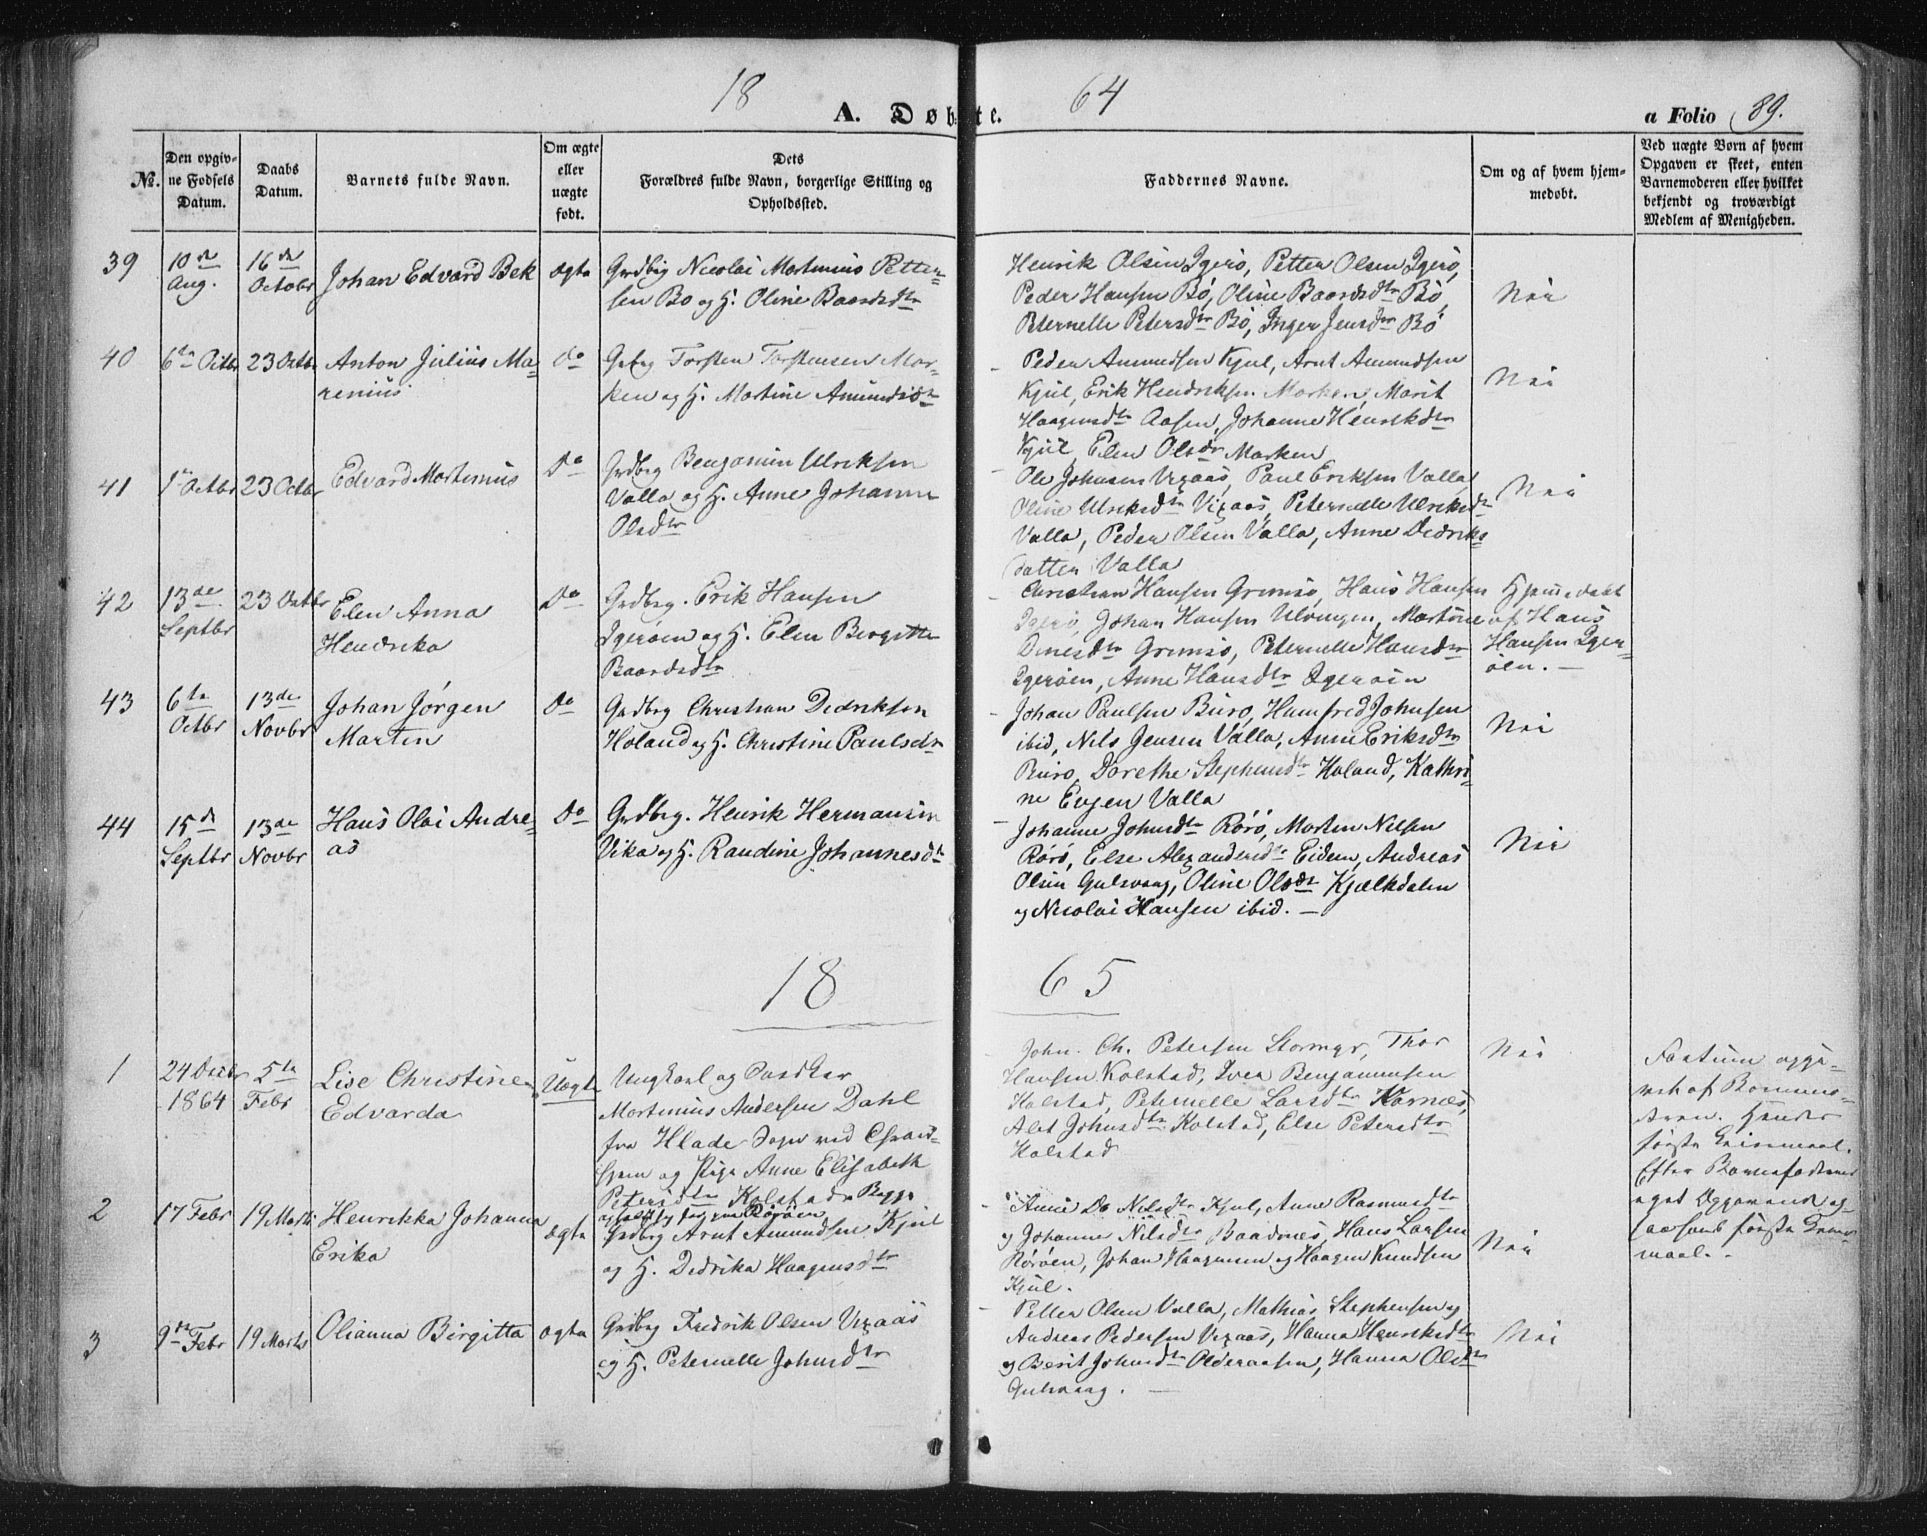 18 64
A. Døbte.
a Folio 89.
№.
Den opgiv-
ne Fødsels
Datum.
Daabs
Datum.
Barnets fulde Navn.
Om ægte
eller
uægte
født.
Dets
Forældres fulde Navn, borgerlige Stilling og
Opholdssted.
Faddernes Navne.
Om og af hvem hjem-
medøbt.
Ved uægte Børn af hvem
Opgaven er skeet, enten
Barnemoderen eller hvilket
bekjendt og troværdigt
Medlem af Menigheden.
39
10de
Aug.
16de
Octobr
Johan Edvard Bek
ægte
Grdbrg Nicolai Martinius Petter-
sen Bø og H. Oline Baardsdtr
Henrik Olsen Igerø, Petter Olsen Igerø,
Peder Hansen Bø, Oline Baardsdtr Bø
Peternelle Petersdtr Bø, Inger Jensdtr Bø
Nei
40
6te Octbr
23 Octbr
Anton Julius Ma-
renius
Do
Gbrg Torsten Torstensen Mar-
ken og H. Martine Amundsdtr
Peder Amundsen Kjul, Arnt Amundsen
Kjul, Erik Hendriksen Marken, Marit
Haagensdtr Aasen, Johanne Henrikdtr
Kjul, Elen Olsdr Marken
Nei
41
1ste Octbr
23 Octbr
Edvard Martinius
Do
Grdbrg Benjamin Ulriksen
Valla og H. Anne Johanna
Olsdtr
Ole Johnsen Vixaas, Paul Eriksen Valla,
Oline Ulriksdtr Vixaas, Peternelle Ulriksdtr
Valla, Peder Olsen Valla, Anne Didriks-
datter Valla
Nei
42
13de
Septbr
23 Octbr
Elen Anna
Hendrika
Do
Grdbrg. Erik Hansen
Igerøen og H. Elen Bergitte
Baardsdtr
Christian Hansen Grimsø, Hans Hansen
Igerø, Johan Hansen Ulvingen, Martine
Dinesdtr Grimsø, Peternelle Hansdtr
Igerøen, Anne Hansdtr Igerøen
Hjemmedøbt
af Hans
Hansen Iger-
øen. —
43
6te
Octbr
13de
Novbr
Johan Jørgen
Martin
Do
Grdbrg Christian Didriksen
Holand og H. Christine Paulsdr
Johan Paulsen Burø, Humfred Johnsen
ibid, Nils Jensen Valla, Anne Eriksdtr
Burø, Dorethe Stephensdtr Holand, Kathri-
ne Evgen Valla
Nei
44
15de
Septbr
13de
Novbr
Hans Olai Andre-
as
Do
Grdbrg. Henrik Hermansen
Vika og H. Randine Johannesdtr
Johanne Johnsdtr Rørø, Morten Nilsen
Rørø, Else Alexandersdtr Eidem, Andreas
Olsen Gulsvaag, Oline Olsdtr Kjælkdalen
og Nicolai Hansen ibid. —
Nei
18 65
1
24 Decbr
1864
5te
Febr
Lise Christine
Edvarda
Uægte
Ungkarl og
Mortinius Andersen Dahl
fra Hlade Sogn ved Thrond-
hjem og Pige Anne Elisabeth
Petersdtr Kolstad. Begges
John. Ch. Petersen Stormyr, Thor
Hansen Kolstad, Iver Benjaminsen
Holstad, Peternelle Larsdtr Hornæs,
Alet Johnsdtr Kolstad, Else Petersdtr
Holstad
Nei
Factum opgi-
vet af Barnemo-
deren. Hendes
første Leiermaal.
Efter Barnefaderens
eget Opgivende og-
saa hans første Leier-
maal. -
2
17 Febr
19 Marts
Henrikka Johanna
Erika
ægte
Grdbrg Arnt Amundsen Kjul
og H. Didrika Haagensdtr
Anne Do Nilsdtr Kjul, Anne Rasmusdtr
og Johanne Nilsdtr Baadsnes, Hans Larsen
Rørøen, Johan Haagensen og Haagen Knudsen
Kjul.
Nei
3
9de Febr
19 Marts
Olianna Birgitta
ægte
Grdbrg Fredrik Olsen Vixaas
og H. Peternelle Johnsdtr
Petter Olsen Valla, Mathias Stephensen og
Andreas Pedersen Vixaas, Hanna Henriksdtr
og Berit Johnsdtr Olderaasen, Hanna Olsdtr
Gulsvaag. —
Nei